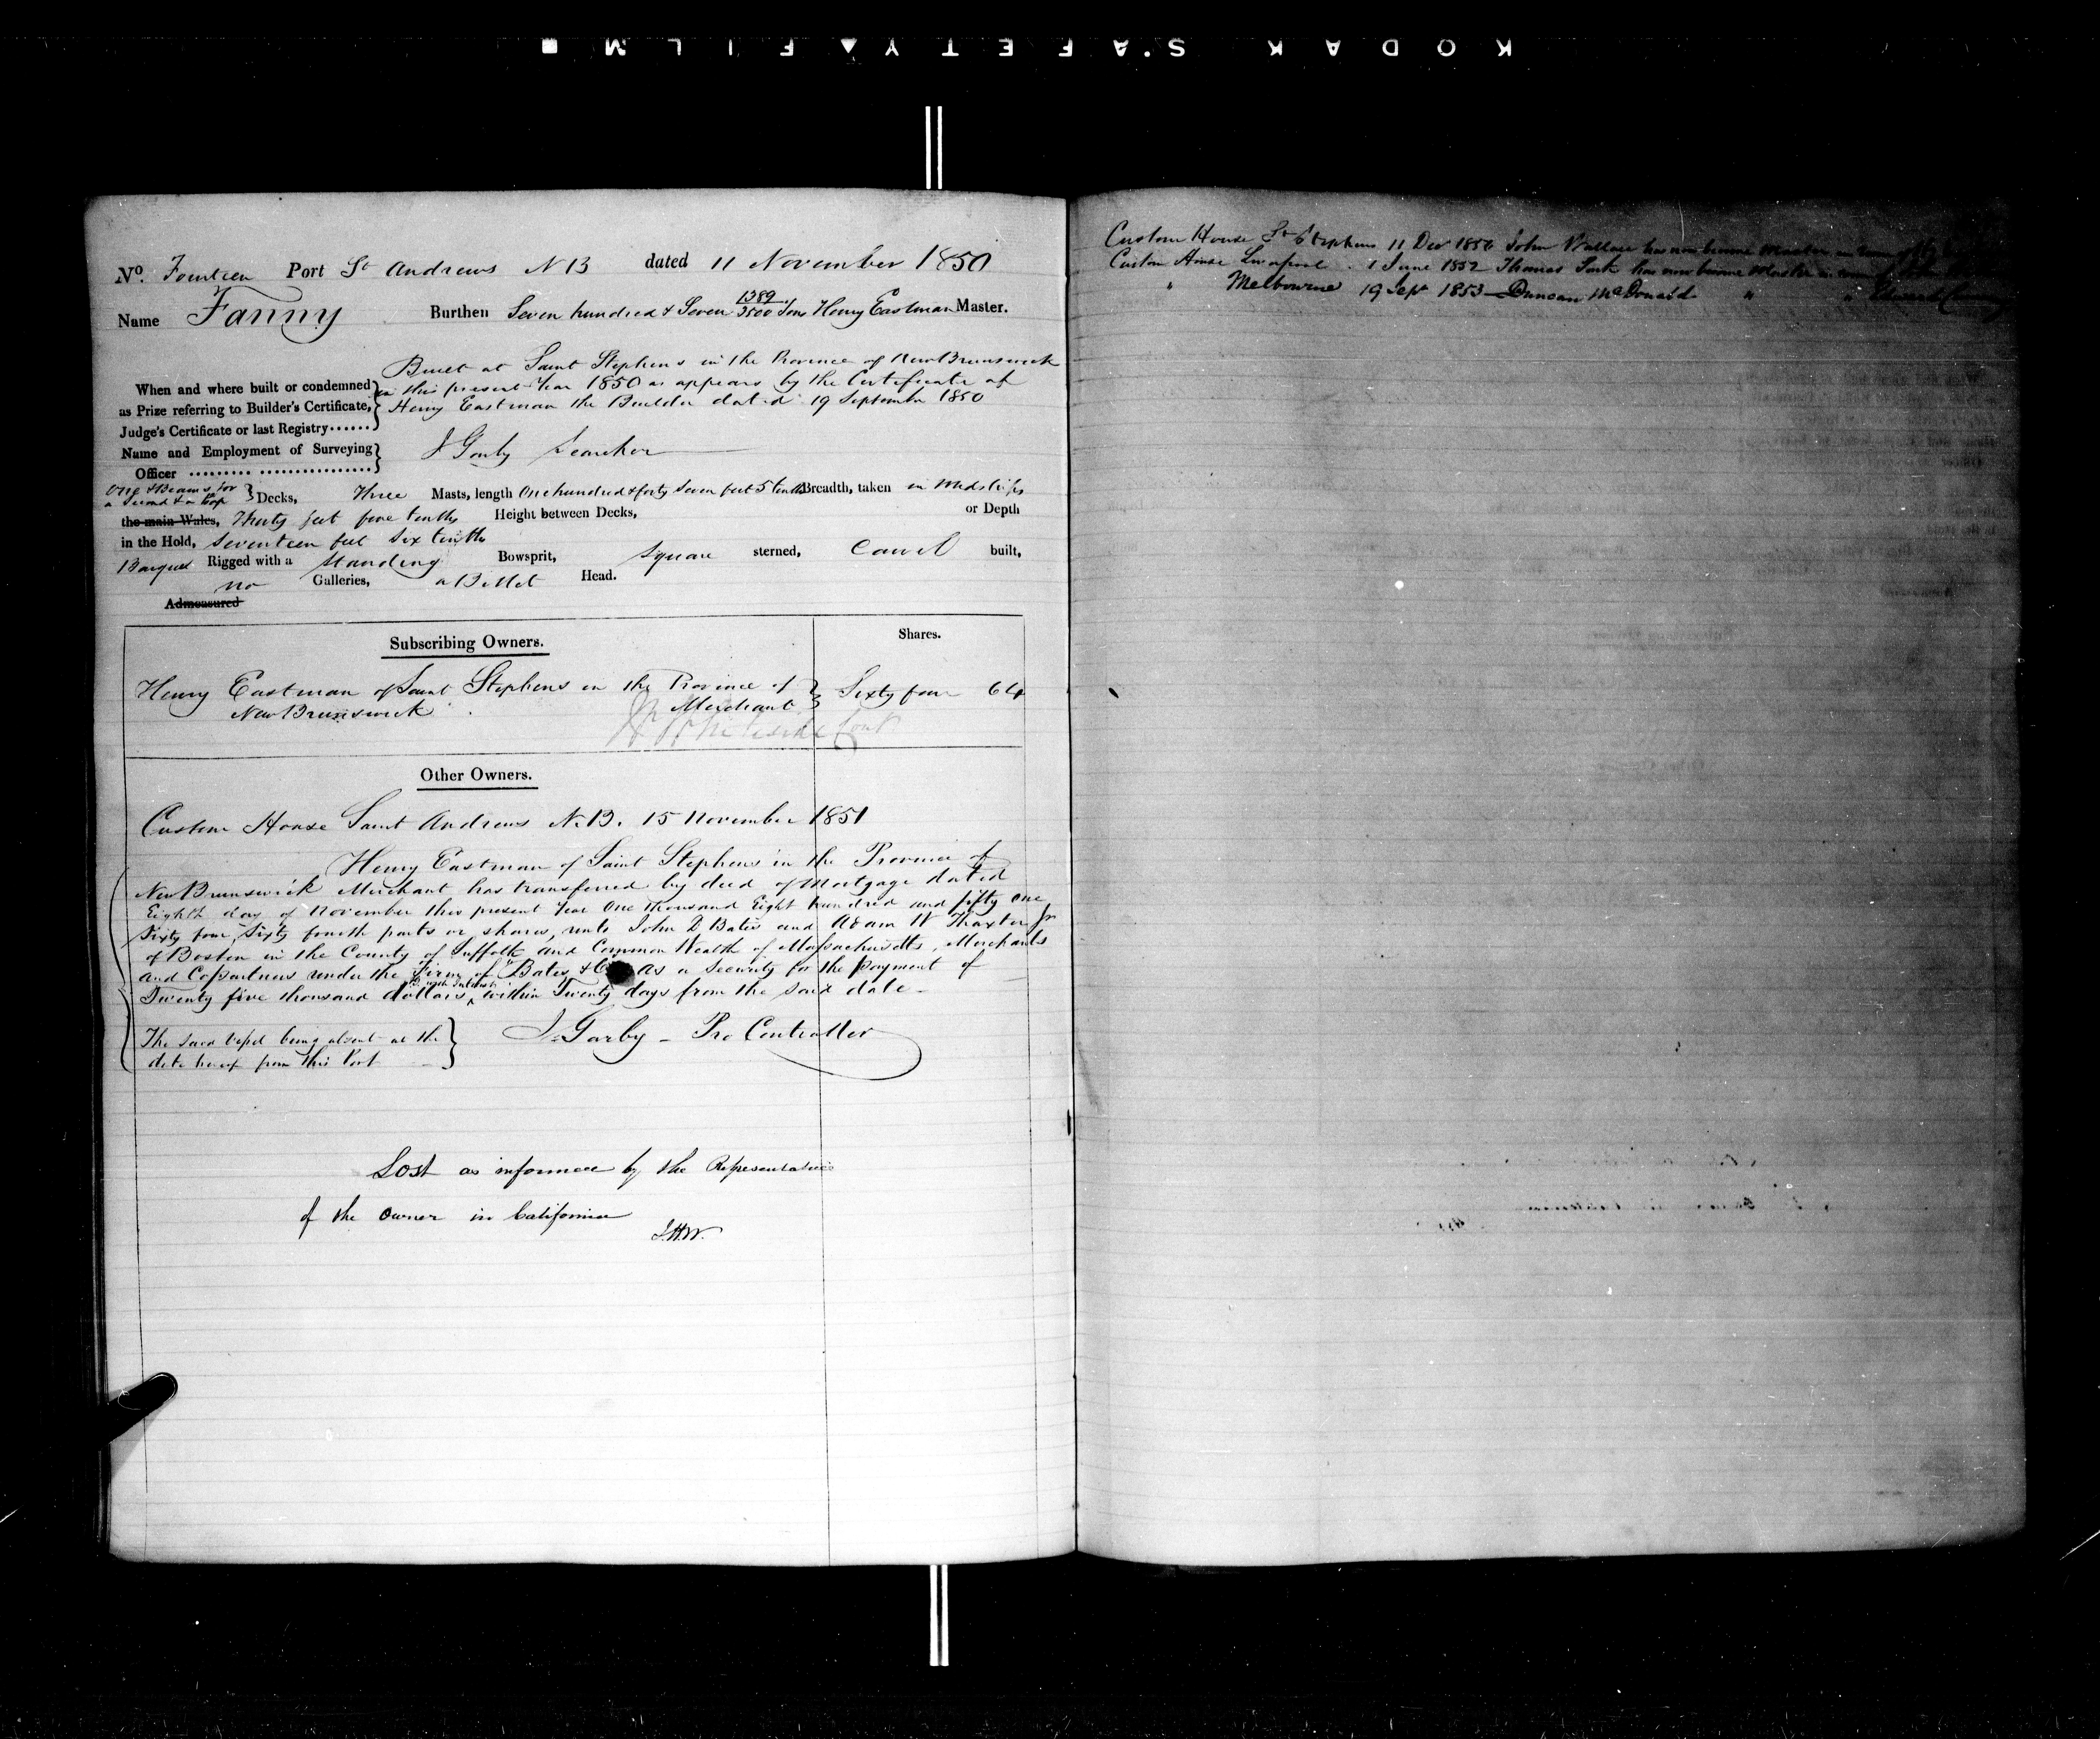 KODAK SAFETY FILM
No. Fourteen Port St Andrews N B dated 11 November 1850
Name Fanny Burthen Seven hundred & Seven 1389/3500 Tons Henry Eastman Master.
Built at Saint Stephens in the Province of New Brunswick
When and where built or condemned in this present Year 1850 as appears by the Certificate of
as Prize referring to Builder's Certificate, Henry Eastman the Builder dated 19 September 1850
Judge's Certificate or last Registry
Name and Employment of Surveying J Garby Searcher
Officer
One & Beams for
a Second & a Poop Decks, Three Masts, length One hundred & forty Seven feet 5 tenths Breadth, taken in Midships
the main Wales, Thirty feet five tenths Height between Decks, or Depth
in the Hold, Seventeen feet Six tenths
Barque Rigged with a Standing Bowsprit, Square sterned, Carvel built,
no Galleries, a Billet Head.
Admeasured
Subscribing Owners. Shares.
Henry Eastman of Saint Stephens in the Province of Sixty four 64
New Brunswick Merchant
Other Owners.
Custom House Saint Andrews N.B. 15 November 1851
Henry Eastman of Saint Stephens in the Province of
New Brunswick Merchant has transferred by deed of Mortgage dated
Eighth day of November this present Year One Thousand Eight hundred and fifty one
Sixty four, Sixty fourth parts or shares, unto John D Bates and Adam W Thaxter Jr
of Boston in the County of Suffolk and Common Wealth of Massachusetts, Merchants
and Copartners under the Firm of "Bates & Co as a Security for the payment of
with Interest
Twenty five thousand dollars within Twenty days from the said date
The said Vessel being absent at the J. Garby - Pro Controller
date hereof from this Port
Lost as informed by the Representative
of the owner in California
J.H.W.
Custom House St Stephens 11 Dec John Wallace has now become Master in
Custom House Liverpool 1 June 1852 Thomas has now become Master in
" Melbourne 19 Sept 1853 Duncan McDonald " " Edward